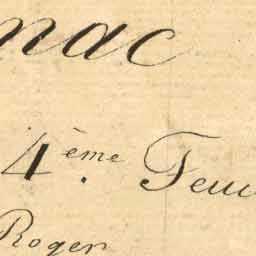 nac
4ème Feui
Roger